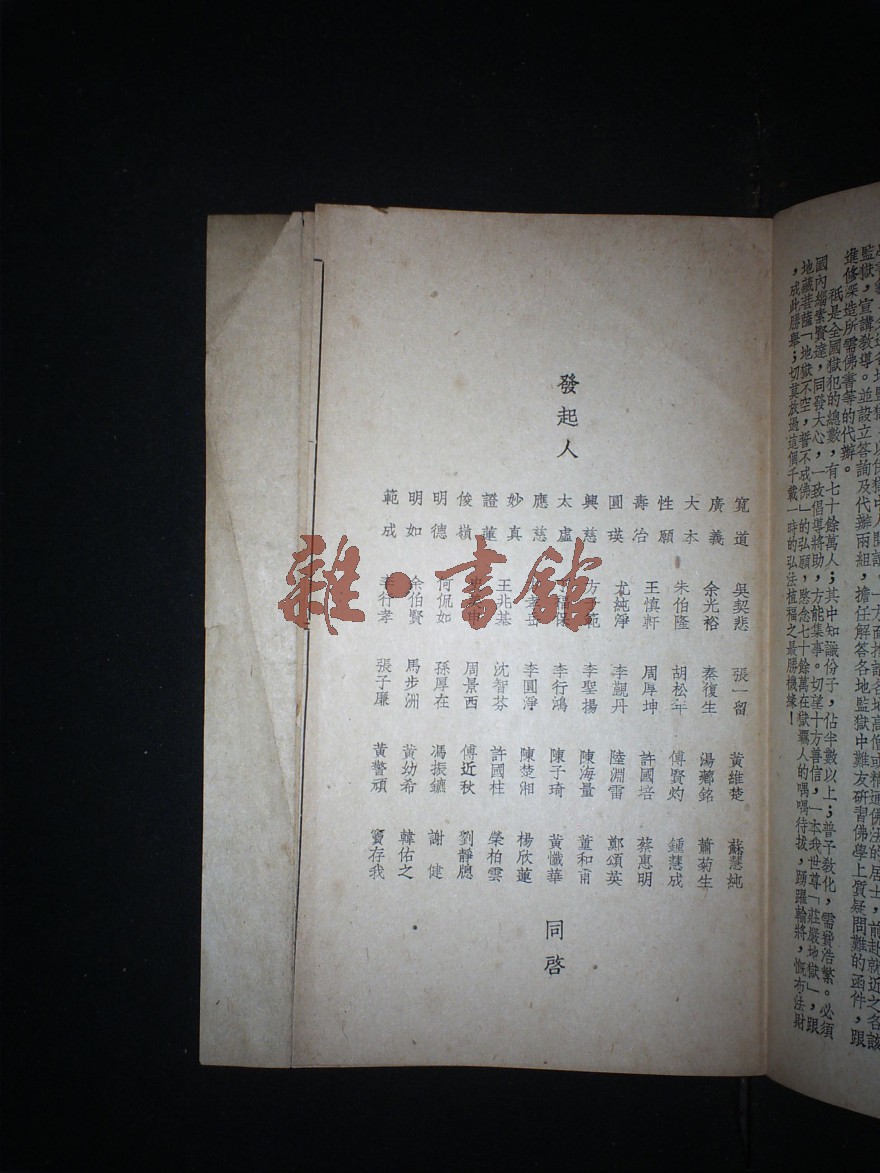 中人閱讀，一方面招請各地高僧或精通佛法的居士，前赴就近之各該
監獄，宣講教導。並設立答詢及代辦兩組，擔任解答各地監獄中難友研習佛學上質疑問難的函件，跟
進修深造所需佛書等的代辦。
祇是全國獄犯的總數，有七十餘萬人；其中知識份子，佔半數以上；普予敎化，需費浩繁。必須
國內緇素賢達，同發大心，一致倡導將助，方能集事。切望十方善信，一本我世尊「莊嚴地獄」，跟
地藏菩薩「地獄不空，誓不成佛」的弘願，愍念七十餘萬在獄羈人的喁喁待拔，踴躍輸將，慨布法財
，成此勝舉；切莫放過這個千載一時的弘法植福之最勝機緣！
發起人
寬道 廣義 大本 性願 壽冶 圓瑛 興慈 太虛 應慈 妙真 證蓮 俊嶺 明德 明如 範成
吳契悲 余光裕 朱伯隆 王慎軒 尤純淨 方子範 丁福保 王兆基 何侃如 余伯賢 李行孝
張一留 秦復生 胡松年 周厚坤 李覲丹 李聖揚 李行鴻 李圓淨 沈智芬 周景西 孫厚在 馬步洲 張子廉
黃維楚 湯薌銘 傅賢灼 許國培 陸淵雷 陳海量 陳子琦 陳楚湘 許國柱 傅近秋 馮振鑣 黃幼希 黃警頑
蘇慧純 蕭菊生 鍾慧成 蔡惠明 鄭頌英 董和甫 黃懺華 楊欣蓮 榮柏雲 劉靜牕 謝健 韓佑之 竇存我
同啓
雜·書館